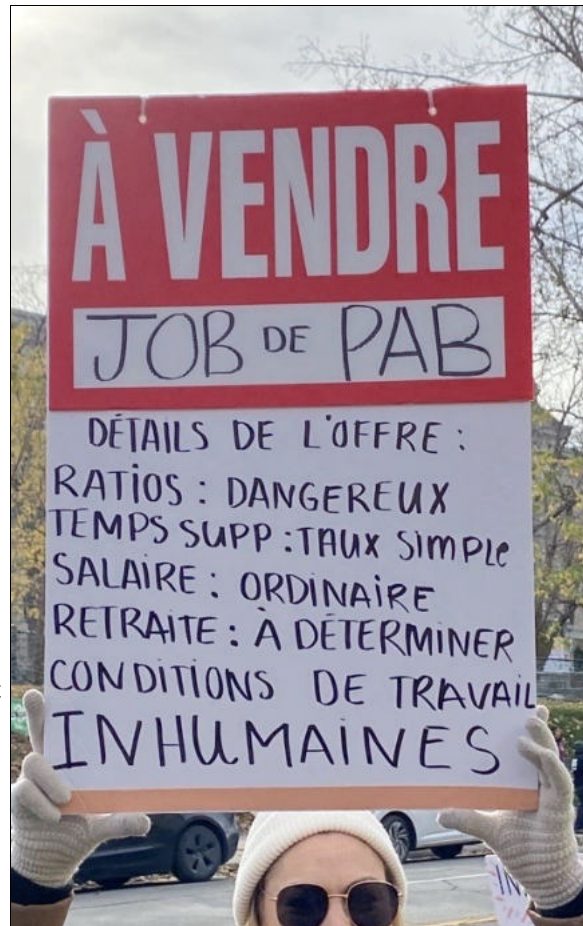 À VENDRE
JOB DE PAB
DÉTAILS DE L'OFFRE :
RATIOS : DANGEREUX
TEMPS SUPP : TAUX SIMPLE
SALAIRE : ORDINAIRE
RETRAITE : À DÉTERMINER
CONDITIONS DE TRAVAIL
INHUMAINES